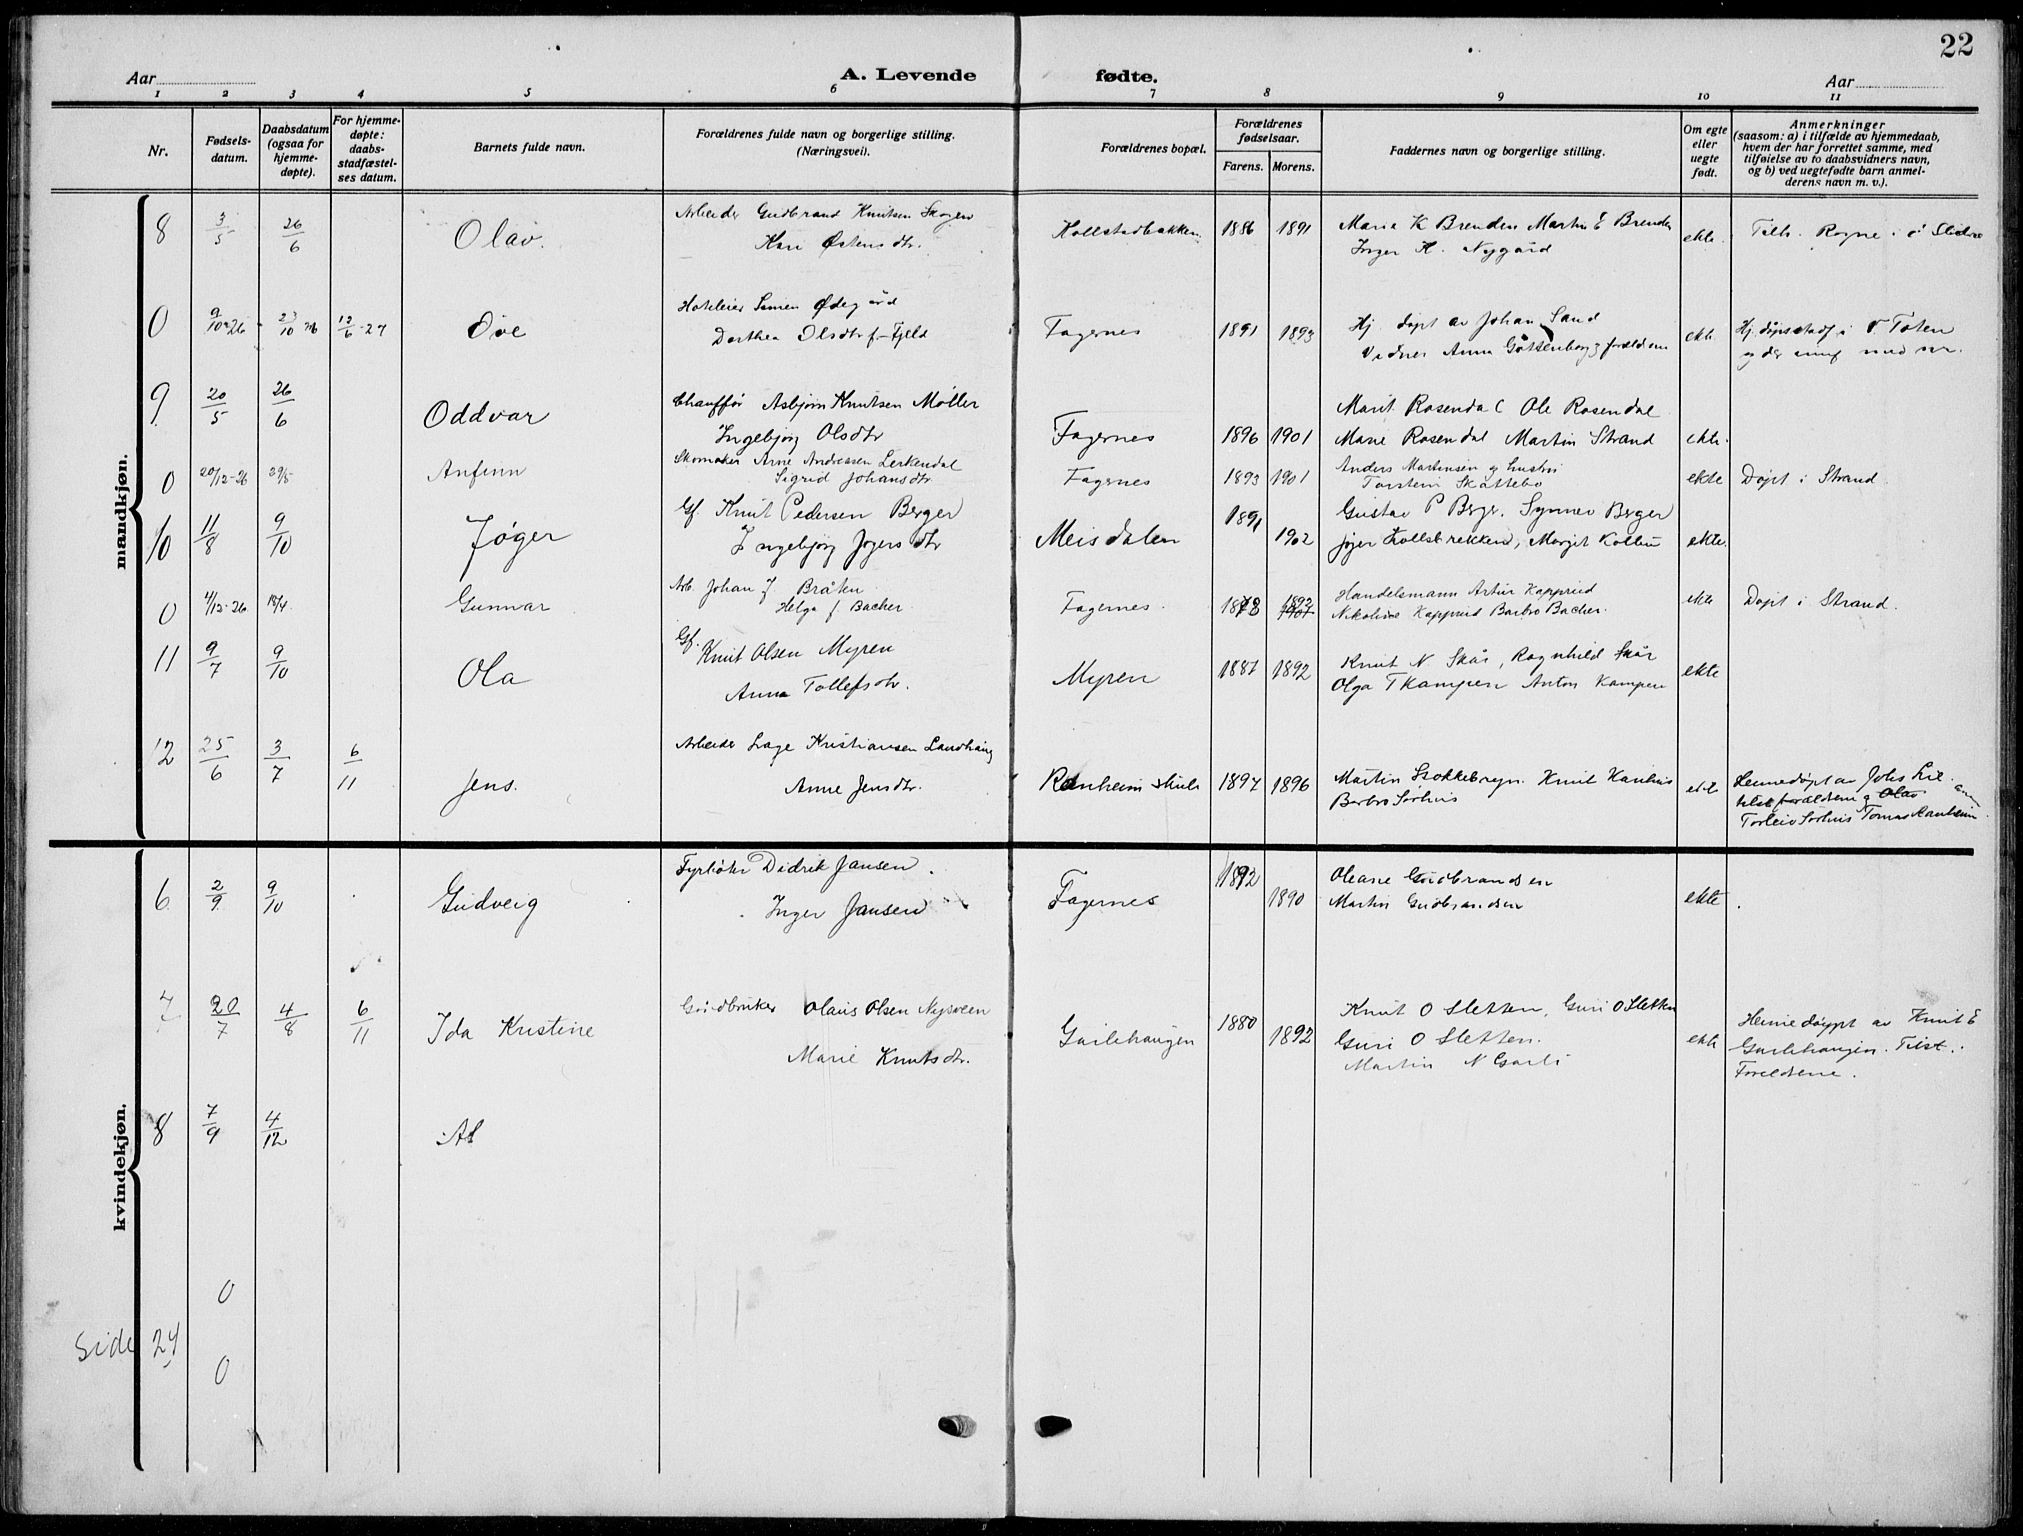 22
Aar
A. Levende fødte.
Aar
1 2 3 4 5 6 7 8 9 10 11
Nr.
Fødsels-
datum.
Daabsdatum
(ogsaa for
hjemme-
døpte).
For hjemme-
døpte:
daabs-
stadfæstel-
ses datum.
Barnets fulde navn.
Forældrenes fulde navn og borgerlige stilling.
(Næringsvei).
Forældrenes bopæl.
Forældrenes
fødselsaar.
Farens. Morens.
Faddernes navn og borgerlige stilling.
Om egte
eller
uegte
født.
Anmerkninger
(saasom: a) i tilfælde av hjemmedaab,
hvem der har forrettet samme, med
tilføielse av to daabsvidners navn,
og b) ved uegtefødte barn anmel-
derens navn m. v.).
mandkjøn.
8 3/5 26/6 Olav. Arbeider Gudbrand Knutsen Skogen Kollstadbakken 1886 1891 Maria K Brenden Martin E Brenden ekte. Tilh. Rogne i ø Slidre
Kari Østensdtr. Inger K. Nygård
0 9/10-26 23/10 26 12/6-27 Ove Hoteleier Simen Ødegård Fagernes 1891 1893 Hj. døpt av Johan Sand ekte Hj. dåpsstadf. i V Toten
Dorthea Olsdtr f. Fjeld Vidner Anna Gottenborg forældrene
9. 20/5 26/6 Oddvar Chauffør Asbjørn Knutsen Møller Marit Rosendal Ole Rosendal
Ingebjørg Olsdtr Fagernes 1896 1901 Marie Rosendal Martin Strand ekte.
0 20/12-26 29/5 Anfinn Skomaker Arne Andreasen Lerkendal Fagernes 1893 1901 Anders Martinsen og hustru ekte Døpt i Strand
Sigrid Johansdtr Torstein Skattebo
10 11/8 9/10 Jøger Gf. Knut Pedersen Berger Meisdalen 1891 1902 Gustav P Berger. Synnev Berger ekte.
Ingebjørg Jøgersdtr Jøger Kollsbrekken, Margit
0 4/12-26 18/4 Gunnar Arb. Johan J Bråten Fagernes. 1878 1892 Handelsmann Artur Kapprud ekte Døpt i Strand.
Helga f Bacher Nikoline Kapprud Barbro Bacher.
11 9/7 9/10 Ola Gf. Knut Olsen Myren Myren 1887 1892 Knut N. Skår, Ragnhild Skår ekte
Anna Tollefsdtr. Olga T Kampen Anton Kampen
12 25/6 3/7 6/11 Jens. Arbeider Lage Kristiansen Ranheim skule 1897 1896 Martin Knut ekte Heimedøpt av Johs
Anne Jensdtr. Barbro Sørhus forældrene og Olav
Torleiv Sørhus Tomas Ranheim
kvindekjøn.
6 2/9 9/10 Gudveig Fyrbøter Didrik Jansen. Fagernes 1892 1890 Oleane Gudbrandsen ekte.
Inger Jansen Martin Gudbrandsen
7 20/7 4/8 6/11 Ida Kristine Gårdbruker Olaus Olsen Nysveen Garlihaugen 1880 1892 Knut O Sletten, Guri O Sletten ekte Heimedøypt av Knut E
Marie Knutsdtr. Guri O Sletten. Garlihaugen. Tilst.:
Martin N Garli Foreldrene.
8 7/9 4/12 Al
0
Side 24
0